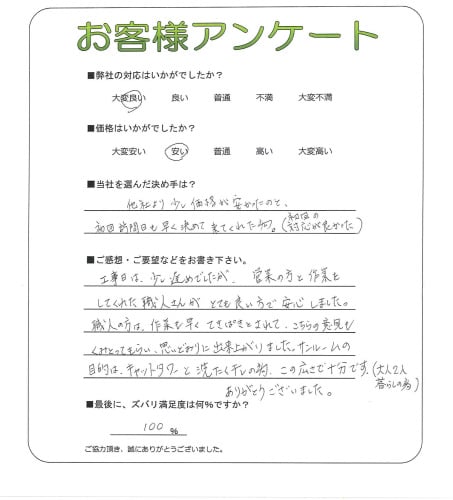 お客様アンケート
■弊社の対応はいかがでしたか？
大変良い 良い 普通 不満 大変不満
■価格はいかがでしたか？
大変安い 安い 普通 高い 大変高い
■当社を選んだ決め手は？
他社より少し価格が安かったのと、
初回訪問日も早く決めて来てくれた為。(初回の対応が良かった)
■ご感想・ご要望などをお書き下さい。
工事日は、少し遅めでしたが、営業の方と作業を
してくれた職人さんがとても良い方で安心しました。
職人の方は、作業も早くてきぱきとされて、こちらの意見も
くみとってもらい、思いどおりに出来上がりました。サンルームの
目的は、キャットタワーと洗たくホシの為、この広さで十分です。(大人2人暮らしの為)
ありがとうございました。
■最後に、ズバリ満足度は何%ですか？
100 %
ご協力頂き、誠にありがとうございました。